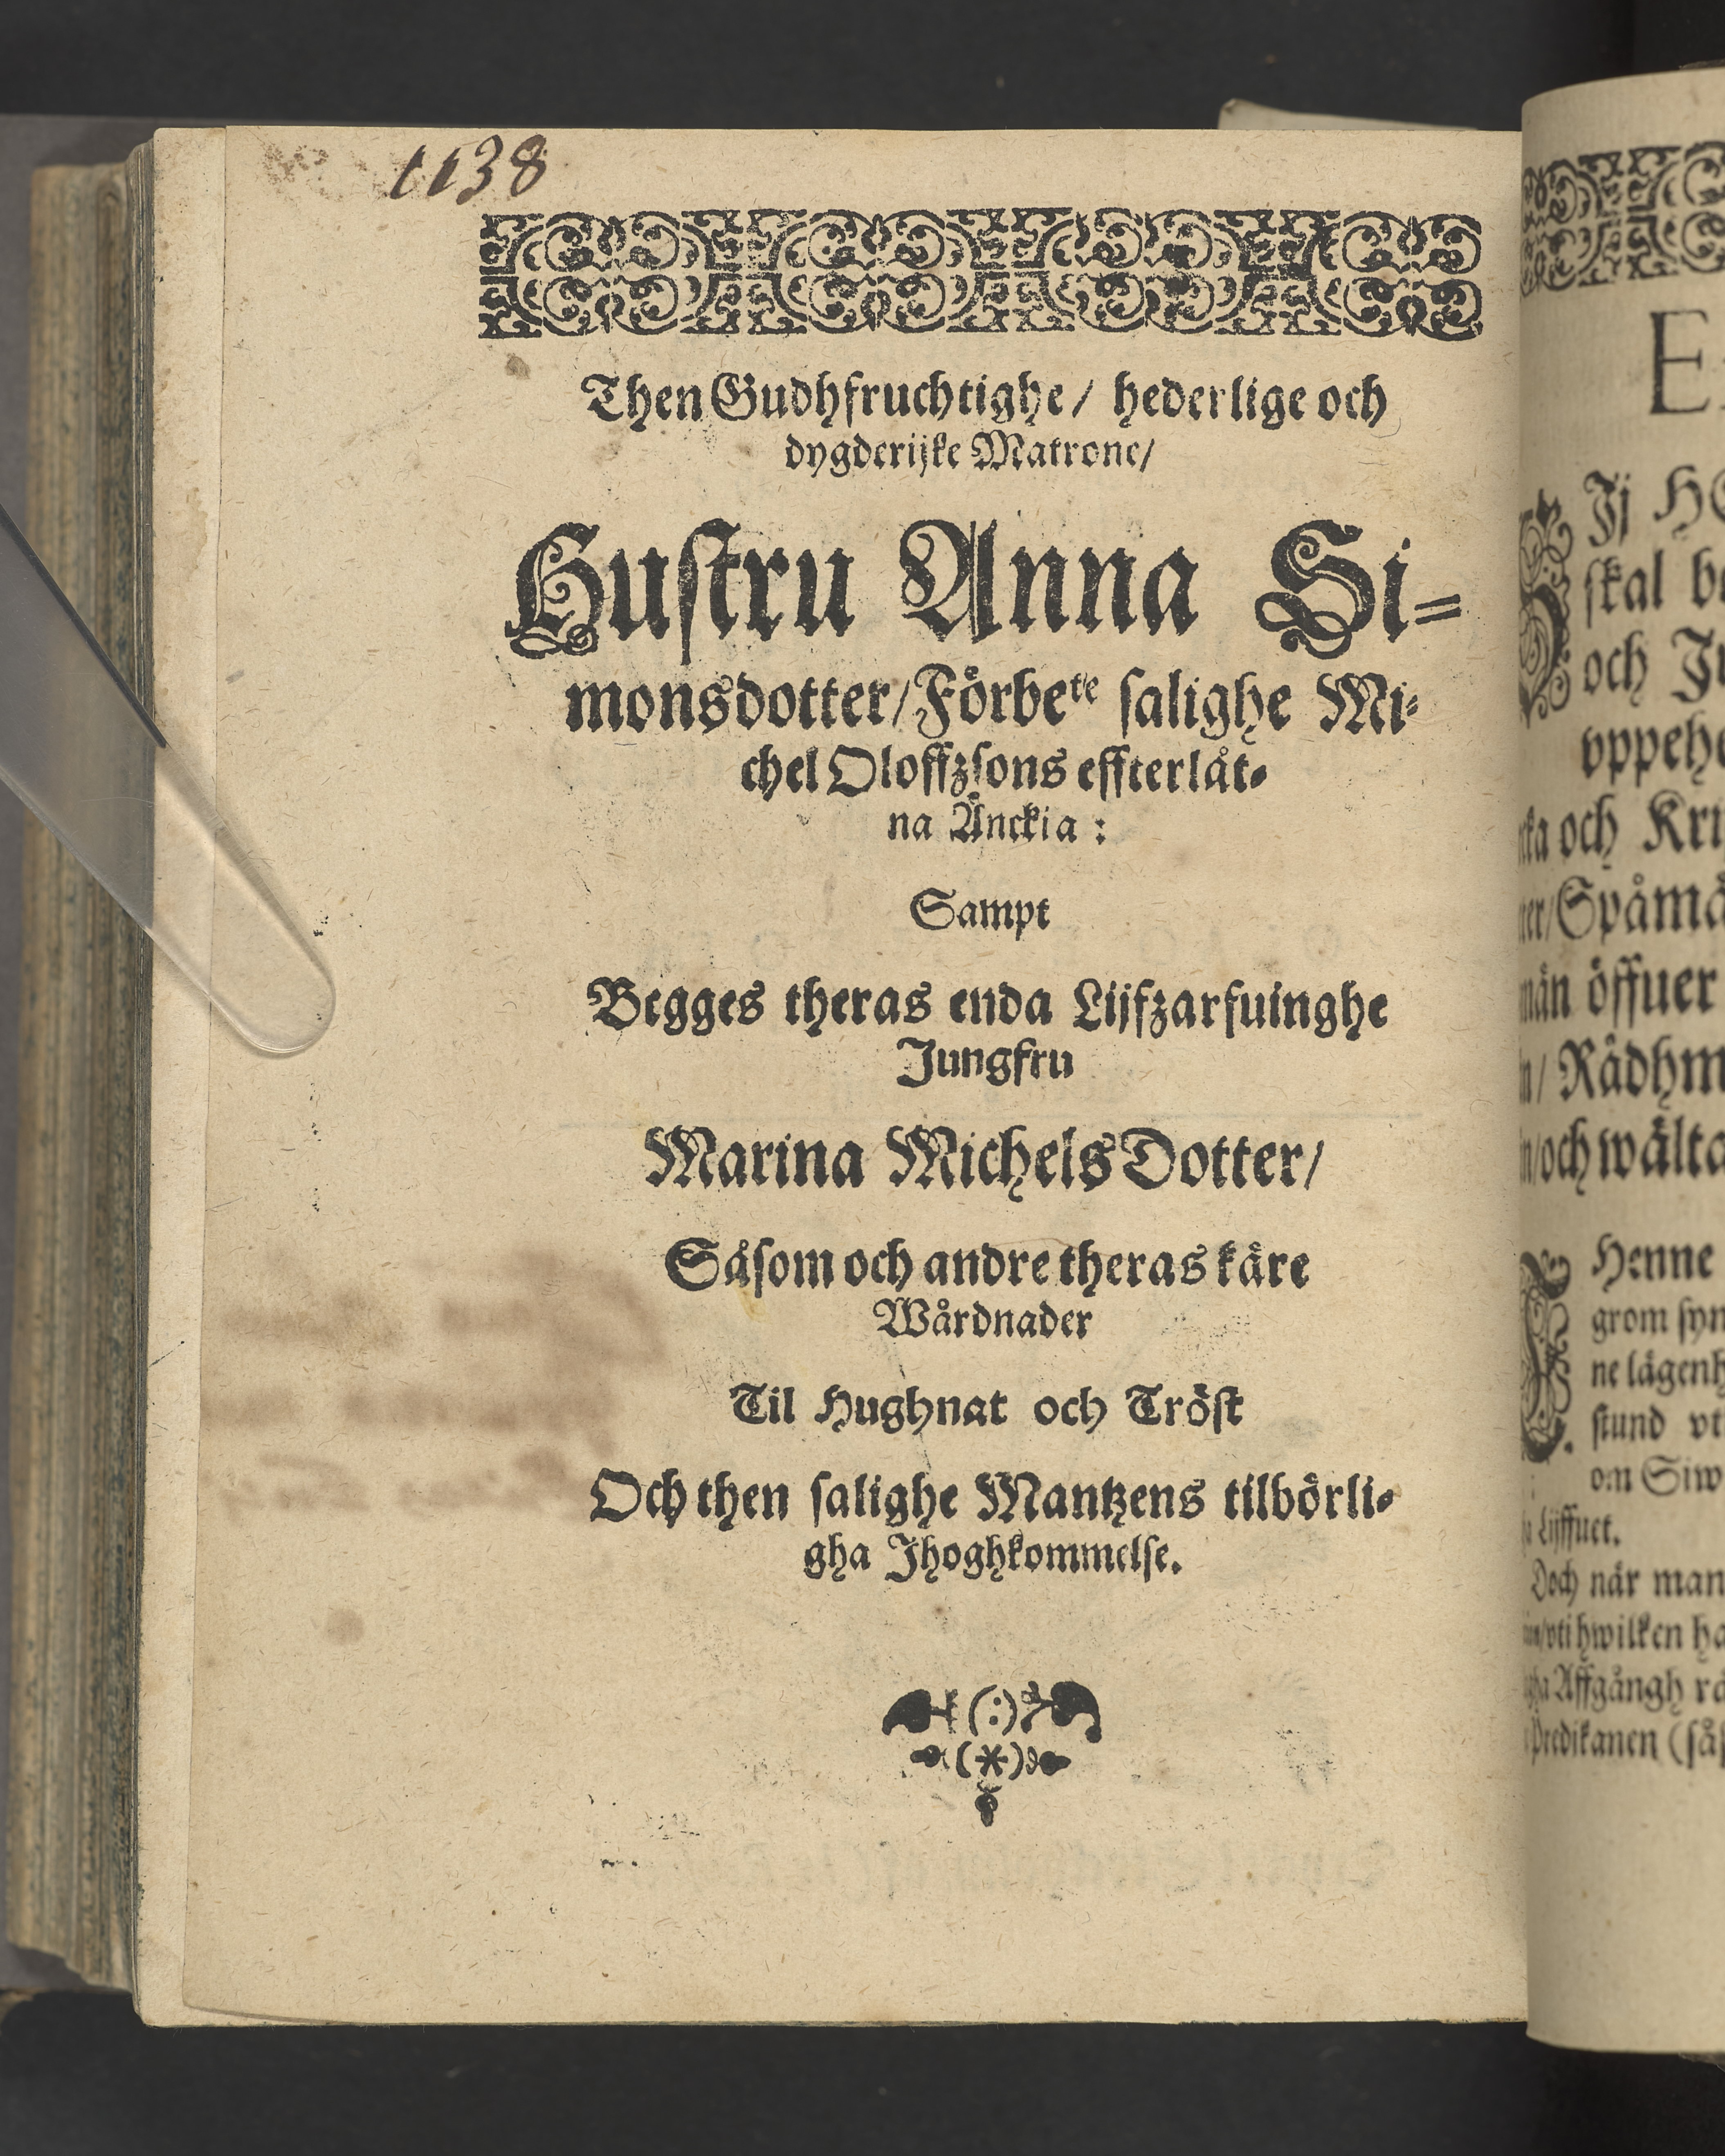 1138
Then Gudhfruchtighe / hederlige och
dygderijke Matrone /
Hustru Anna Si=
monsdotter / Förbe^te salighe Mi-
chel Oloffzsons effterlåt-
na Änckia :
Sampt
Begges theras enda Lijfzarfuinghe
Jungfru
Marina Michels Dotter /
Såsom och andre theras käre
Wårdnader
Til Hughnat och Tröst
Och then salighe Mantzens tilbörli-
gha Jhoghkommelse.
(:)
(*)
Jj
skal
och
Kri
och
öffuer
Rådhm
och wälta
Henne
grom
ne
stund
om Siw
Lijffuet.
Doch när man
hwilken
Affgångh
Predikanen